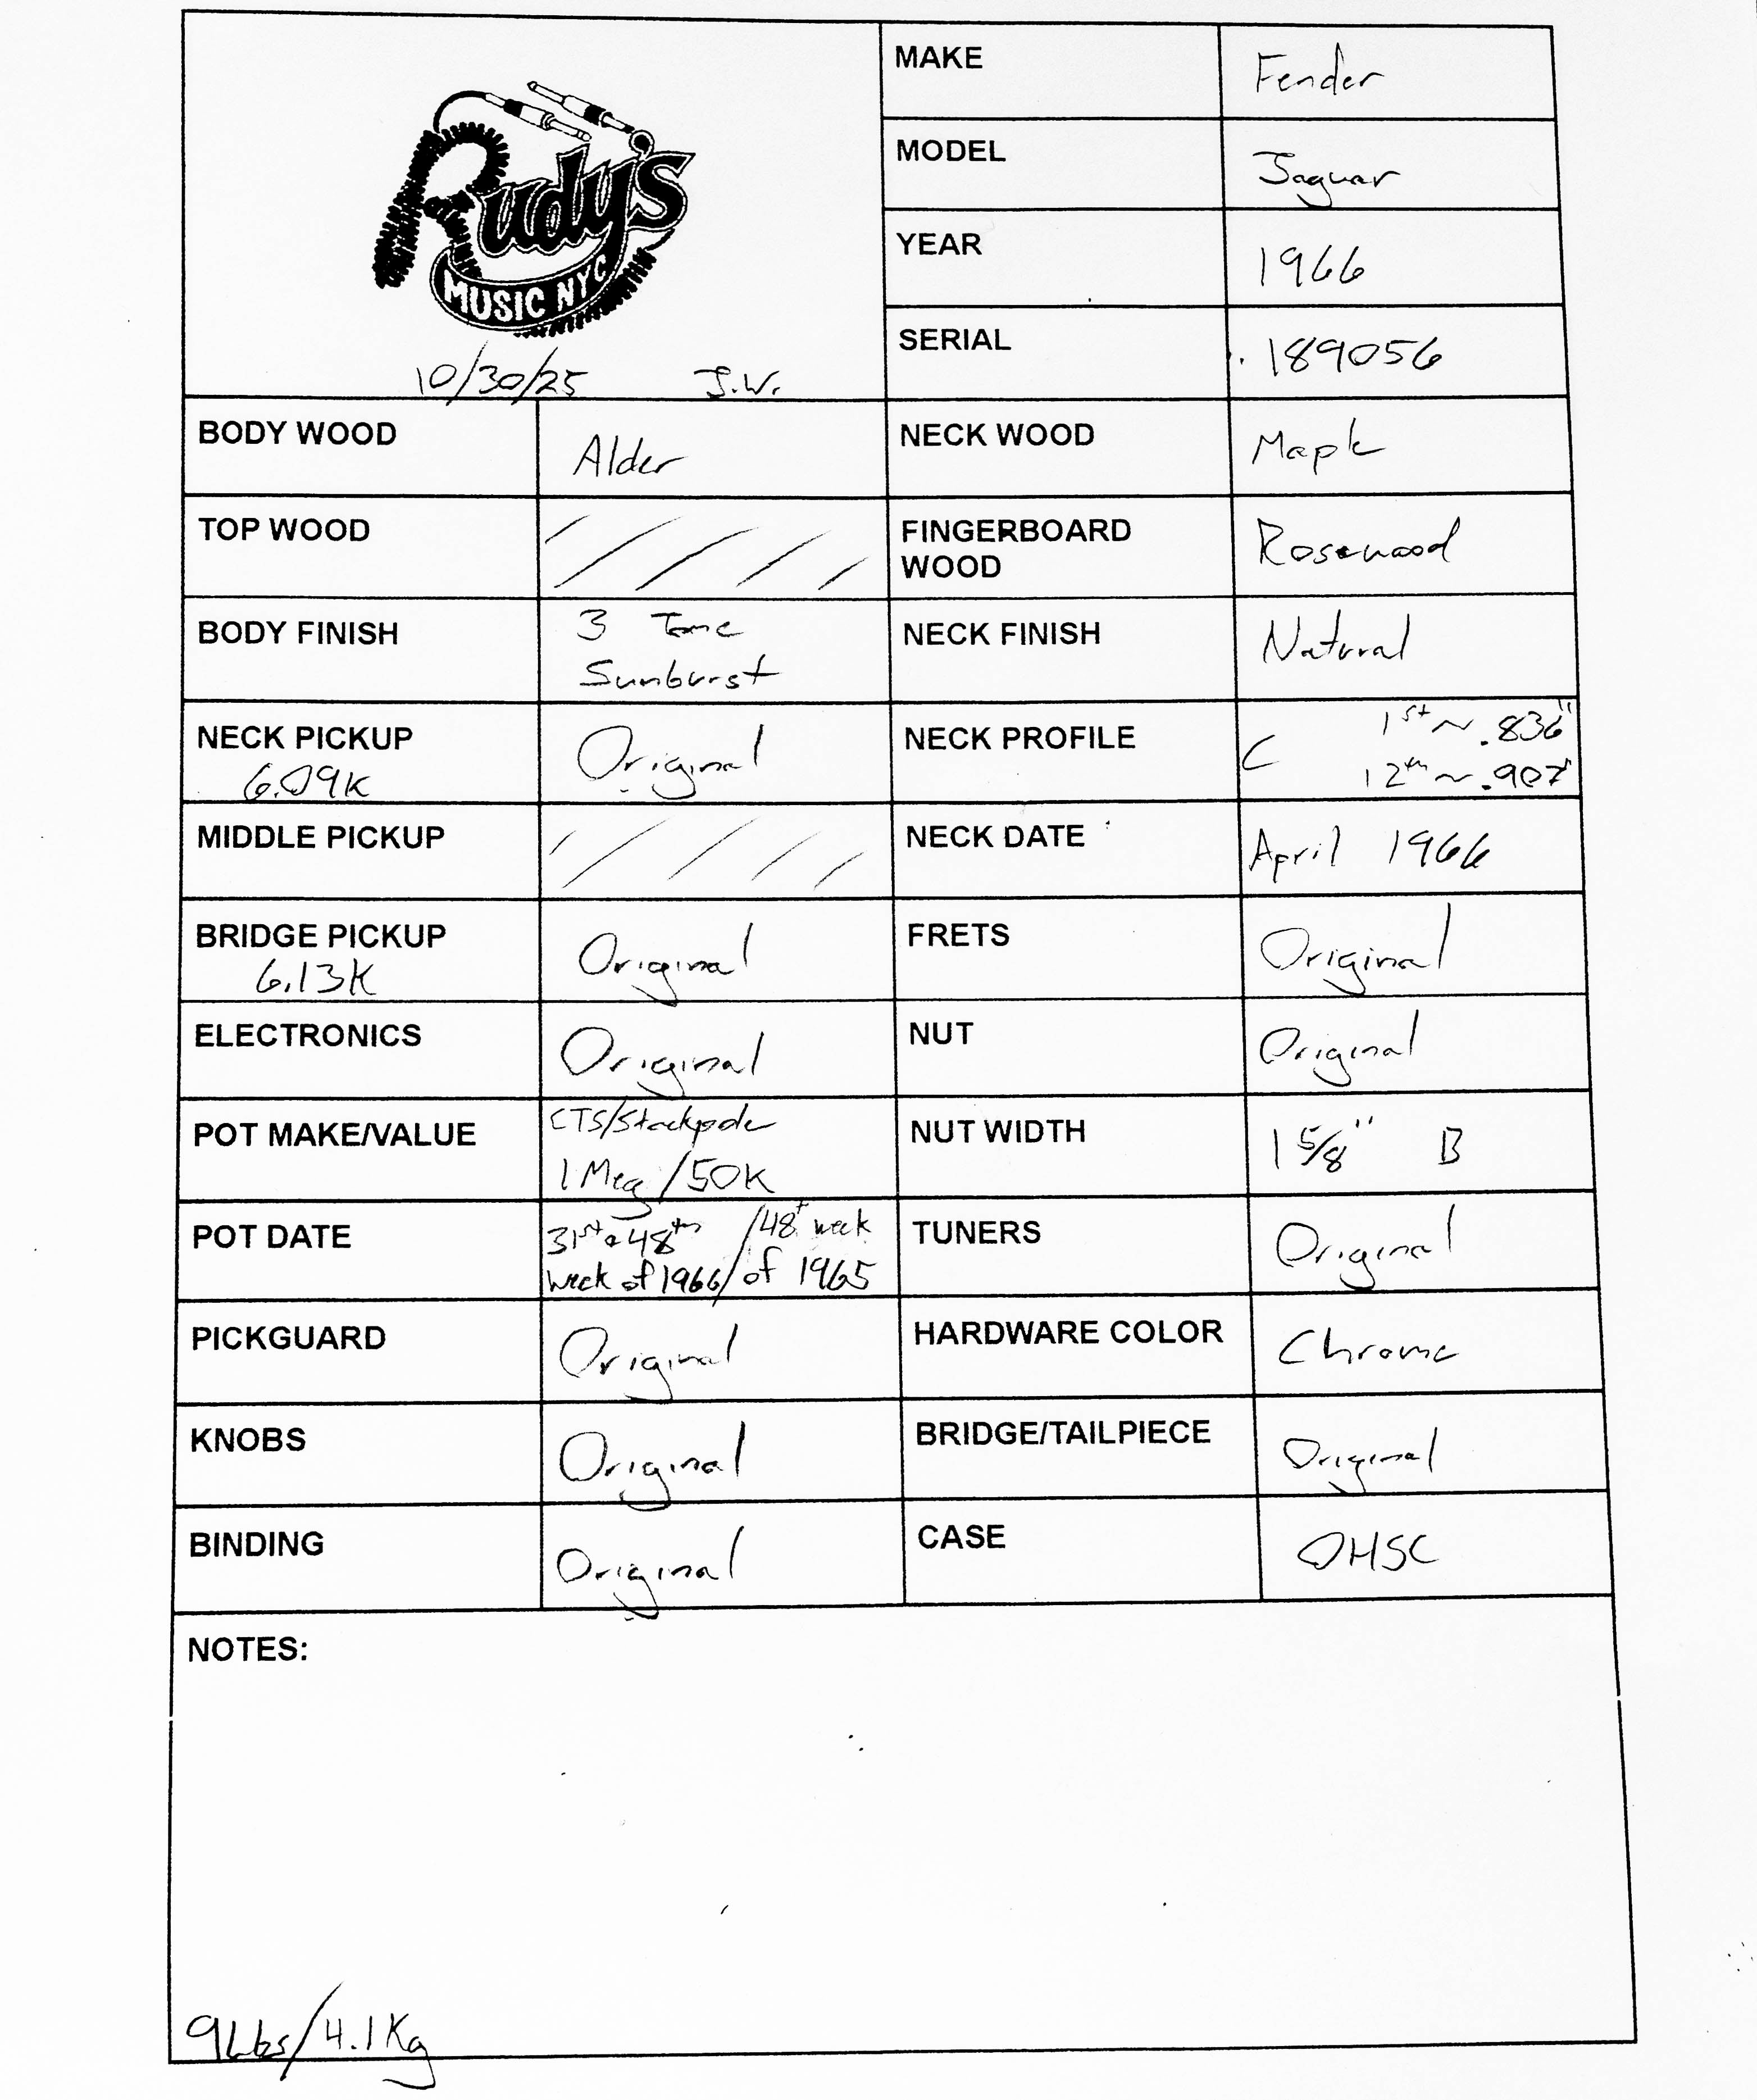 Rudy's
MUSIC NYC
10/30/25 J.W.
MAKE Fender
MODEL Jaguar
YEAR 1966
SERIAL 189056
BODY WOOD Alder
NECK WOOD Maple
TOP WOOD
FINGERBOARD
WOOD Rosewood
BODY FINISH 3 Tone
Sunburst
NECK FINISH Natural
NECK PICKUP Original
6.09K
NECK PROFILE C 1st ~ .836"
12th ~ .907"
MIDDLE PICKUP
NECK DATE April 1966
BRIDGE PICKUP Original
6.13K
FRETS Original
ELECTRONICS Original
NUT Original
POT MAKE/VALUE CTS/Stackpole
1 Meg/50K
NUT WIDTH 1 5/8" B
POT DATE 31st & 48th /48th week
week of 1966/of 1965
TUNERS Original
PICKGUARD Original
HARDWARE COLOR Chrome
KNOBS Original
BRIDGE/TAILPIECE Original
BINDING Original
CASE OHSC
NOTES:
9Lbs/4.1Kg